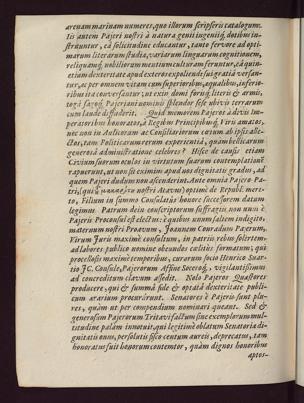 arenam marinam numeres, quo illorum scripseris catalogum.
Iis autem Pajeri nostri à natura geniti ingeniiq́; dotibus in-
struuntur, eâ solicitudine educantur, tanto fervore ad opti-
marum literarum studia, variarum linguarum cognitionem,
reliquamq́; nobilium mentium culturam feruntur, eâ quin-
etiam dexteritate apud exteros expoliendi sui gratiâ versan-
tur, ac per omnem vitam cum superioribus, æqualibus, inferio-
ribus ita conversantur; ut exin domi forisq́; literis & armis,
togâ sagoq́; Pajeriani nominis splendor sese ubivis terrarum
cum laude diffuderit. Quid memorem Pajeros à divis Im-
peratoribus honoratos, à Regibus Principibusq́; Viris amatos,
nec non in Aulicorum ac Consiliariorum cœtum ab ipsis alle-
ctos, tam Politicarum rerum experientiâ, quàm bellicarum
generosâ administratione celebres? Hisce de causis etiam
Civium suorum oculos in virtutum suarum contemplationē
rapuerunt, ut non sit eximius apud nos dignitatis gradus, ad
quem Pajeri dudum non ascenderint. Ante omnia Pajero Pa-
tri, (qui nostri Atavus) optimè de Republ. meri-
to, Filium in summo Consulatus honore successorem datum
legimus. Patrum dein conscriptorum suffragiis non unus è
Pajeris Proconsul est electus: è quibus unum saltem indigito,
maternum nostri Proavum, Joannem Conradum Pajerum,
Virum Juris maximè consultum, in patriis rebus solertem,
ad labores publico nomine obeundos cœlitùs formatum; qui
procellosis maximè temporibus, curarum socio Henrico Suar-
tio JC. Consule, Pajerorum Affine Soceroq́;, vigilantissimus
ad concreditum clavum assedit. Nolo Pajeros Quæstores
producere, qui & summâ fide & optatâ dexteritate publi-
cum ærarium procurârunt. Senatores è Pajeris sunt plu-
res, quàm ut per compendium nominari queant. Sed &
generosam Pajerorum Tritavi factum sine exemplo tum mul-
titudine palàm innotuit, qui legitimè oblatum Senatoria di-
gnitatis onus, persolutis ipso centum aureis, deprecatus, tam
honoratus fuit honorum contemtor, quàm dignos honoribus
aptos-